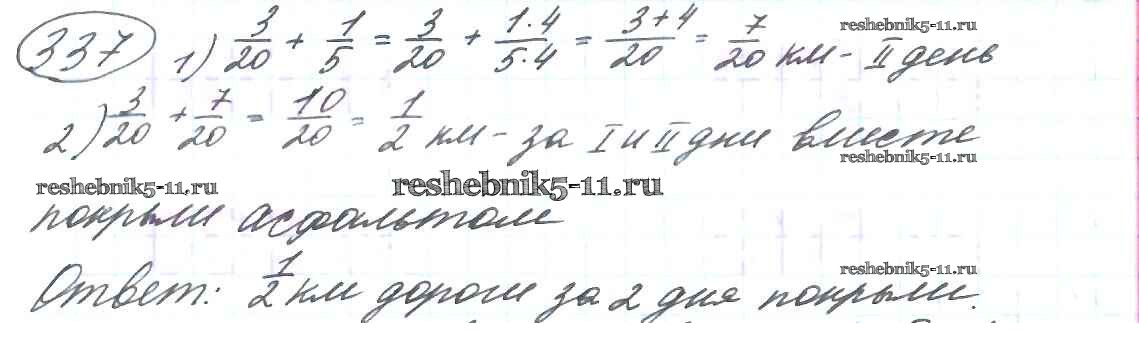 337 1) 3/20 + 1/5 = 3/20 + 1·4/5·4 = 3+4/20 = 7/20 км - II день
reshebnik5-11.ru
2) 3/20 + 7/20 = 10/20 = 1/2 км - за I и II дни вместе
reshebnik5-11.ru
reshebnik5-11.ru reshebnik5-11.ru
покрыли асфальтом
reshebnik5-11.ru
Ответ: 1/2 км дороги за 2 дня покрыли.